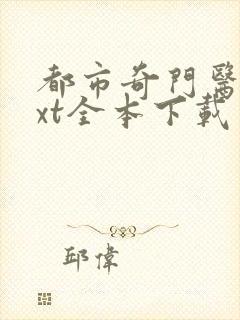 都市奇門醫
xt全本下載
邱偉